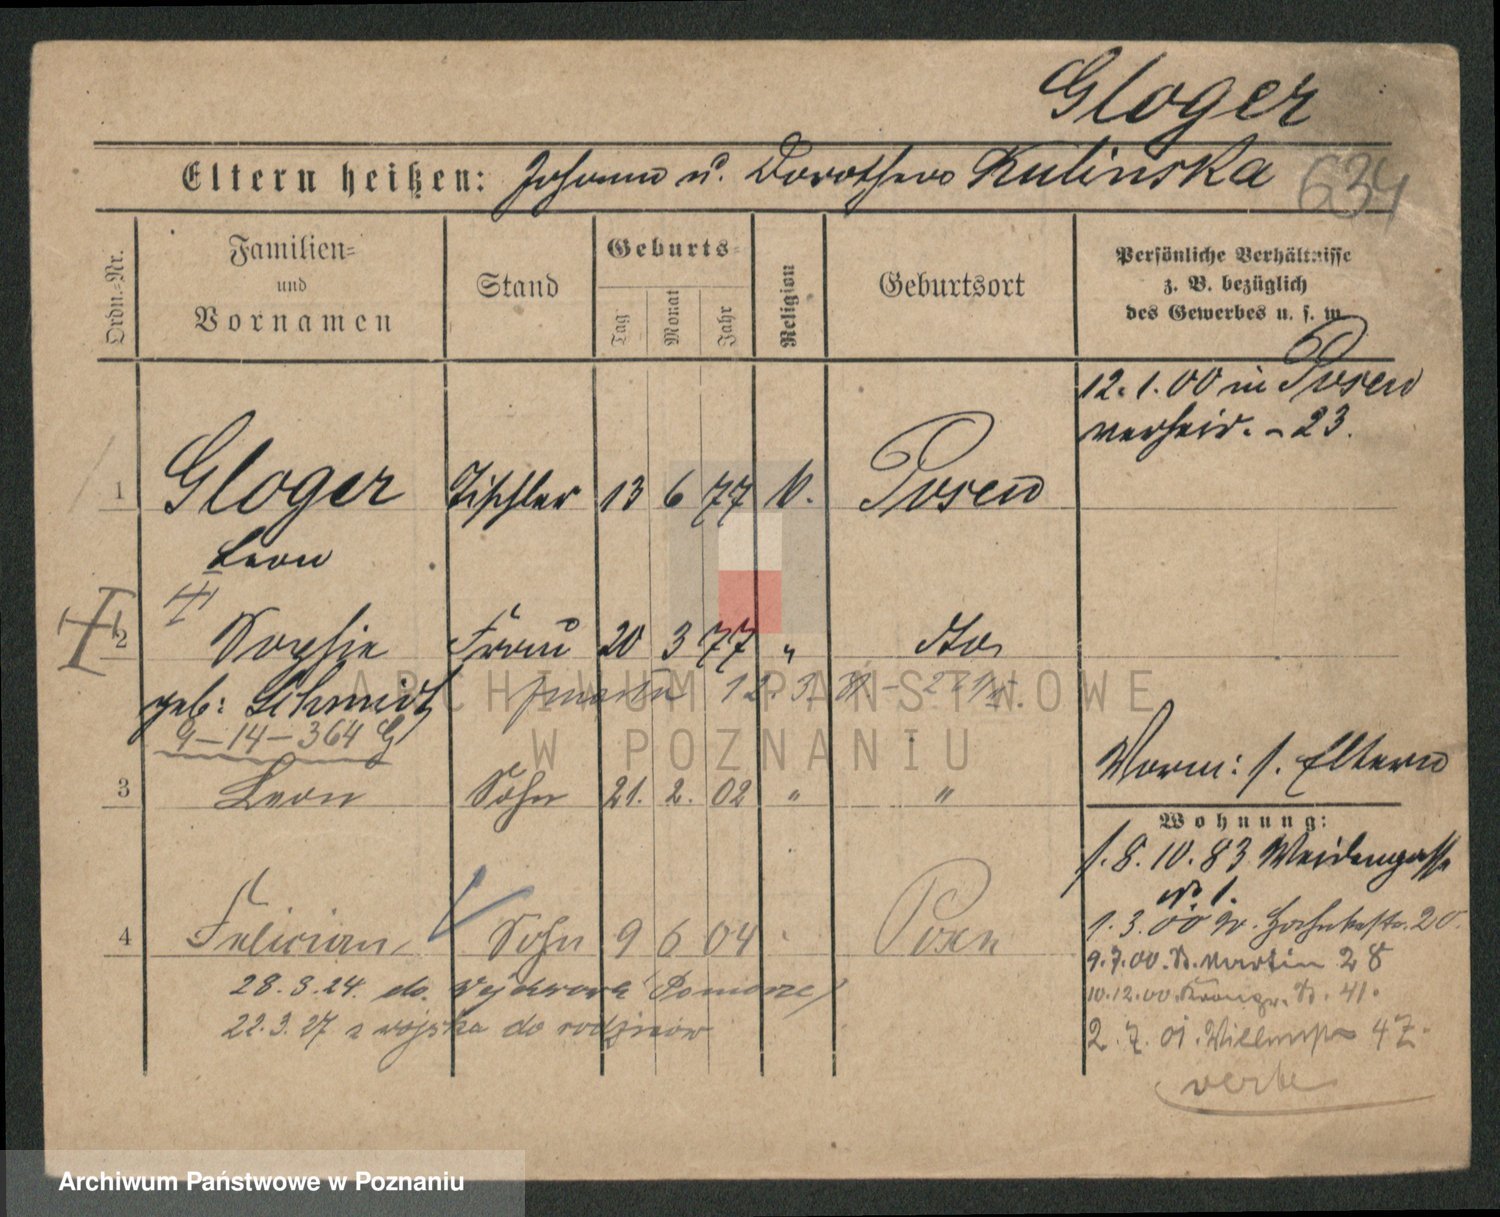 Gloger
Eltern heißen: Johann u. Dorothea Kulinska
634
Ordn.-Nr.
Familien-
und
Vornamen
Stand
Geburts-
Tag
Monat
Jahr
Religion
Geburtsort
Persönliche Verhältnisse
z. B. bezüglich
des Gewerbes u. s. w.
12.1.00 in Posen
verheir. - 23.
1 Gloger Tischler 13 6 77 k. Posen
Leon
2 Sophie Frau 20 3 77 " dto.
geb: Schmidt
9-14-364 G
3 Leon Sohn 21. 2. 02 " "
Vorm: s. Eltern
Wohnung:
s. 8. 10. 83 Weidengasse
No 1.
4 Felician Sohn 9 6 04 Posen
1.3.00 20.
9.7.00. St. Martin 28
10.12.00. 41.
2. 7. 01. 47.
verte
28.3.24. do Wejherowa (Pomorze)
22.3.27 z wojska do rodziców
ARCHIWUM PAŃSTWOWE
W POZNANIU
Archiwum Państwowe w Poznaniu